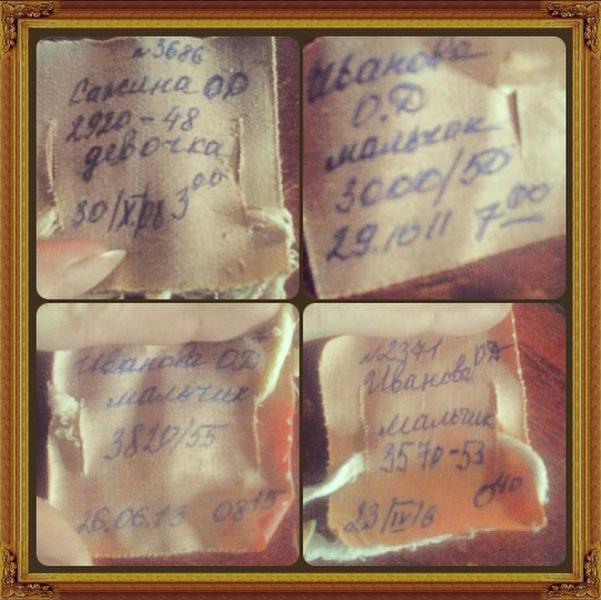 №3686
Сажина ОД
2920-48
девочка
30/XII 3⁰⁰
Иванова
О.Д
мальчик
3000/50
29.10 11 7⁰⁰
Иванова О.Д
мальчик
3820/55
26.06.13 08¹⁵
№2371
Иванова ОД
Мальчик
3570-53
23/IV/6 0⁴⁰